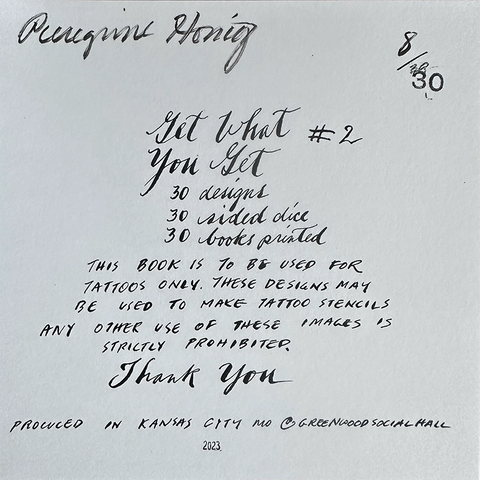 Peregrine Honig
8/30
Get What #2
You Get
30 designs
30 sided dice
30 books printed
THIS BOOK IS TO BE USED FOR
TATTOOS ONLY. THESE DESIGNS MAY
BE USED TO MAKE TATTOO STENCILS
ANY OTHER USE OF THESE IMAGES IS
STRICTLY PROHIBITED.
Thank You
PRODUCED IN KANSAS CITY MO @GREENWOODSOCIALHALL
2023